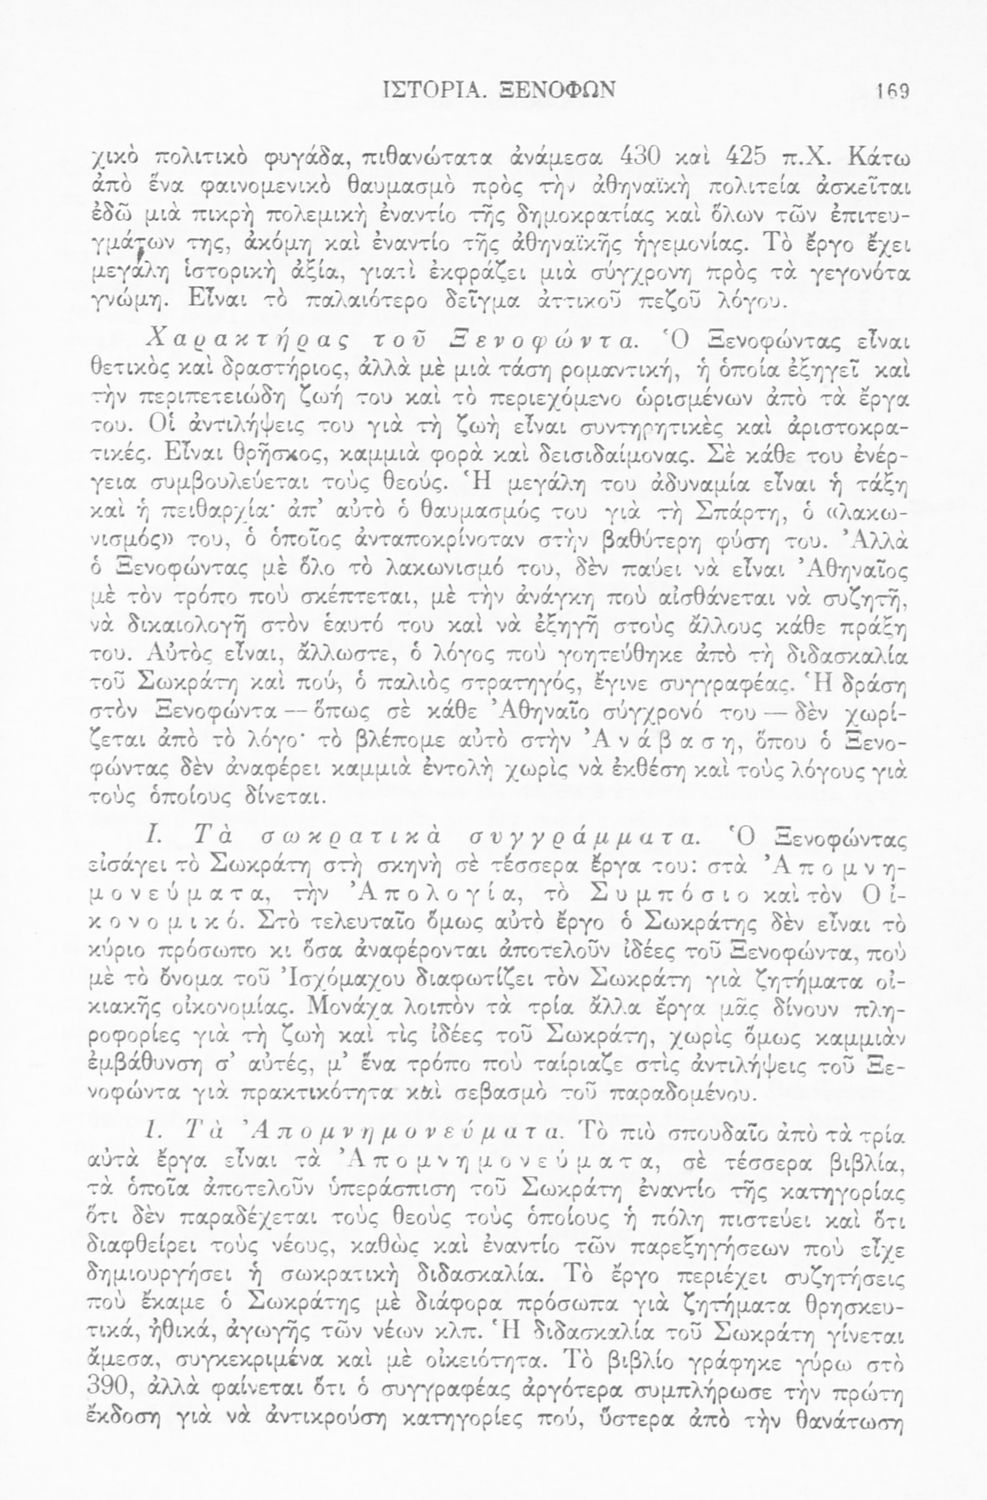 ΙΣΤΟΡΙΑ. ΞΕΝΟΦΩΝ 169
χικὸ πολιτικὸ φυγάδα, πιθανώτατα ἀνάμεσα 430 καὶ 425 π.Χ. Κάτω
ἀπὸ ἕνα φαινομενικὸ θαυμασμὸ πρὸς τὴν ἀθηναϊκὴ πολιτεία ἀσκεῖται
ἐδῶ μιὰ πικρὴ πολεμικὴ ἐναντίο τῆς δημοκρατίας καὶ ὅλων τῶν ἐπιτευ-
γμάτων της, ἀκόμη καὶ ἐναντίο τῆς ἀθηναϊκῆς ἡγεμονίας. Τὸ ἔργο ἔχει
μεγάλη ἱστορικὴ ἀξία, γιατὶ ἐκφράζει μιὰ σύγχρονη πρὸς τὰ γεγονότα
γνώμη. Εἶναι τὸ παλαιότερο δεῖγμα ἀττικοῦ πεζοῦ λόγου.
Χαρακτήρας τοῦ Ξενοφώντα. Ὁ Ξενοφώντας εἶναι
θετικὸς καὶ δραστήριος, ἀλλὰ μὲ μιὰ τάση ρομαντική, ἡ ὁποία ἐξηγεῖ καὶ
τὴν περιπετειώδη ζωή του καὶ τὸ περιεχόμενο ὡρισμένων ἀπὸ τὰ ἔργα
του. Οἱ ἀντιλήψεις του γιὰ τὴ ζωὴ εἶναι συντηρητικὲς καὶ ἀριστοκρα-
τικές. Εἶναι θρῆσκος, καμμιὰ φορὰ καὶ δεισιδαίμονας. Σὲ κάθε του ἐνέρ-
γεια συμβουλεύεται τοὺς θεούς. Ἡ μεγάλη του ἀδυναμία εἶναι ἡ τάξη
καὶ ἡ πειθαρχία· ἀπ’ αὐτὸ ὁ θαυμασμός του γιὰ τὴ Σπάρτη, ὁ «λακω-
νισμός» του, ὁ ὁποῖος ἀνταποκρίνοταν στὴν βαθύτερη φύση του. Ἀλλὰ
ὁ Ξενοφώντας μὲ ὅλο τὸ λακωνισμό του, δὲν παύει νὰ εἶναι Ἀθηναῖος
μὲ τὸν τρόπο ποὺ σκέπτεται, μὲ τὴν ἀνάγκη ποὺ αἰσθάνεται νὰ συζητῆ,
νὰ δικαιολογῆ στὸν ἑαυτό του καὶ νὰ ἐξηγῆ στοὺς ἄλλους κάθε πράξη
του. Αὐτὸς εἶναι, ἄλλωστε, ὁ λόγος ποὺ γοητεύθηκε ἀπὸ τὴ διδασκαλία
τοῦ Σωκράτη καὶ πού, ὁ παλιὸς στρατηγός, ἔγινε συγγραφέας. Ἡ δράση
στὸν Ξενοφώντα — ὅπως σὲ κάθε Ἀθηναῖο σύγχρονό του — δὲν χωρί-
ζεται ἀπὸ τὸ λόγο· τὸ βλέπομε αὐτὸ στὴν Ἀνάβαση, ὅπου ὁ Ξενο-
φώντας δὲν ἀναφέρει καμμιὰ ἐντολὴ χωρὶς νὰ ἐκθέση καὶ τοὺς λόγους γιὰ
τοὺς ὁποίους δίνεται.
I. Τὰ σωκρατικὰ συγγράμματα. Ὁ Ξενοφώντας
εἰσάγει τὸ Σωκράτη στὴ σκηνὴ σὲ τέσσερα ἔργα του: στὰ Ἀπομνη-
μονεύματα, τὴν Ἀπολογία, τὸ Συμπόσιο καὶ τὸν Οἰ-
κονομικό. Στὸ τελευταῖο ὅμως αὐτὸ ἔργο ὁ Σωκράτης δὲν εἶναι τὸ
κύριο πρόσωπο κι ὅσα ἀναφέρονται ἀποτελοῦν ἰδέες τοῦ Ξενοφώντα, ποὺ
μὲ τὸ ὄνομα τοῦ Ἰσχόμαχου διαφωτίζει τὸν Σωκράτη γιὰ ζητήματα οἰ-
κιακῆς οἰκονομίας. Μονάχα λοιπὸν τὰ τρία ἄλλα ἔργα μᾶς δίνουν πλη-
ροφορίες γιὰ τὴ ζωὴ καὶ τὶς ἰδέες τοῦ Σωκράτη, χωρὶς ὅμως καμμιὰν
ἐμβάθυνση σ’ αὐτές, μ’ ἕνα τρόπο ποὺ ταίριαζε στὶς ἀντιλήψεις τοῦ Ξε-
νοφώντα γιὰ πρακτικότητα καὶ σεβασμὸ τοῦ παραδομένου.
1. Τὰ Ἀπομνημονεύματα. Τὸ πιὸ σπουδαῖο ἀπὸ τὰ τρία
αὐτὰ ἔργα εἶναι τὰ Ἀπομνημονεύματα, σὲ τέσσερα βιβλία,
τὰ ὁποῖα ἀποτελοῦν ὑπεράσπιση τοῦ Σωκράτη ἐναντίο τῆς κατηγορίας
ὅτι δὲν παραδέχεται τοὺς θεοὺς τοὺς ὁποίους ἡ πόλη πιστεύει καὶ ὅτι
διαφθείρει τοὺς νέους, καθὼς καὶ ἐναντίο τῶν παρεξηγήσεων ποὺ εἶχε
δημιουργήσει ἡ σωκρατικὴ διδασκαλία. Τὸ ἔργο περιέχει συζητήσεις
ποὺ ἔκαμε ὁ Σωκράτης μὲ διάφορα πρόσωπα γιὰ ζητήματα θρησκευ-
τικά, ἠθικά, ἀγωγῆς τῶν νέων κλπ. Ἡ διδασκαλία τοῦ Σωκράτη γίνεται
ἄμεσα, συγκεκριμένα καὶ μὲ οἰκειότητα. Τὸ βιβλίο γράφηκε γύρω στὸ
390, ἀλλὰ φαίνεται ὅτι ὁ συγγραφέας ἀργότερα συμπλήρωσε τὴν πρώτη
ἔκδοση γιὰ νὰ ἀντικρούση κατηγορίες πού, ὕστερα ἀπὸ τὴν θανάτωση